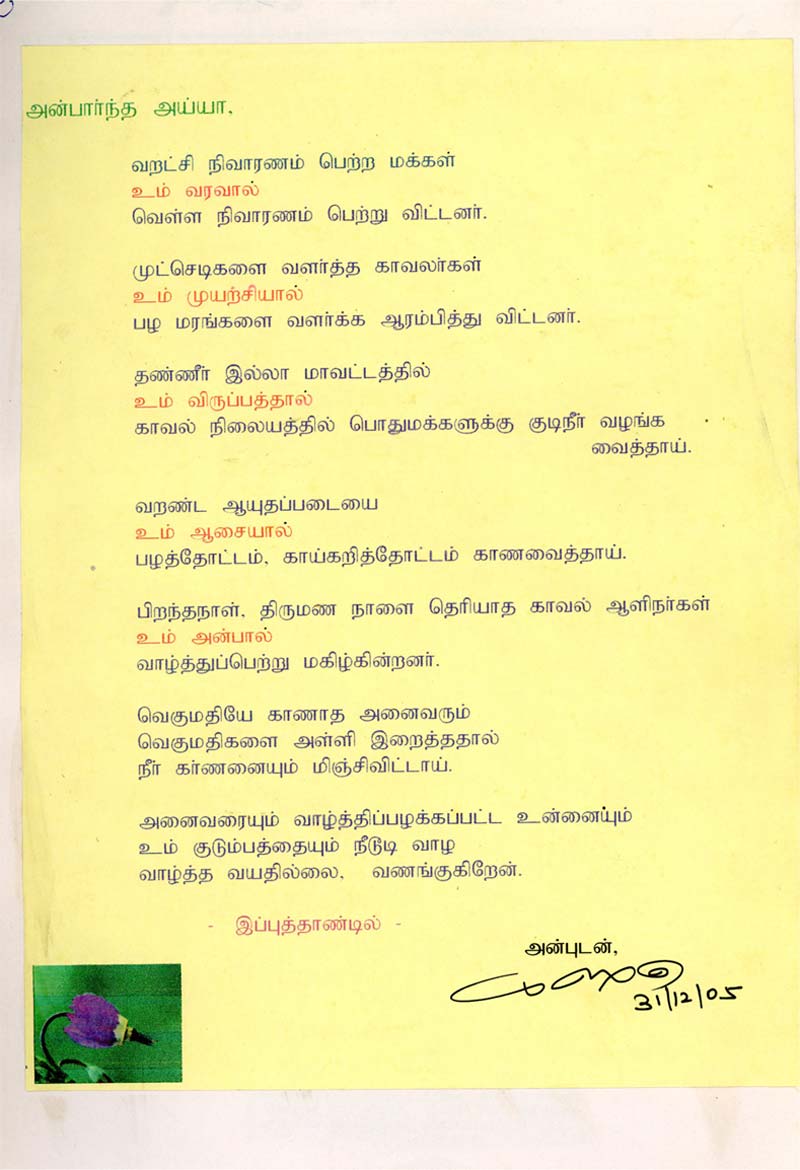 அன்பார்ந்த அய்யா,
வறட்சி நிவாரணம் பெற்ற மக்கள்
உம் வரவால்
வெள்ள நிவாரணம் பெற்று விட்டனர்.
முட்செடிகளை வளர்த்த காவலர்கள்
உம் முயற்சியால்
பழ மரங்களை வளர்க்க ஆரம்பித்து விட்டனர்.
தண்ணீர் இல்லா மாவட்டத்தில்
உம் விருப்பத்தால்
காவல் நிலையத்தில் பொதுமக்களுக்கு குடிநீர் வழங்க
வைத்தாய்.
வறண்ட ஆயுதப்படையை
உம் ஆசையால்
பழத்தோட்டம், காய்கறித்தோட்டம் காணவைத்தாய்.
பிறந்தநாள், திருமண நாளை தெரியாத காவல் ஆளிநர்கள்
உம் அன்பால்
வாழ்த்துப்பெற்று மகிழ்கின்றனர்.
வெகுமதியே காணாத அனைவரும்
வெகுமதிகளை அள்ளி இறைத்ததால்
நீர் கர்ணனையும் மிஞ்சிவிட்டாய்.
அனைவரையும் வாழ்த்திப்பழக்கப்பட்ட உன்னையும்
உம் குடும்பத்தையும் நீடூடி வாழ
வாழ்த்த வயதில்லை, வணங்குகிறேன்.
- இப்புத்தாண்டில் -
அன்புடன்,
31/12/05